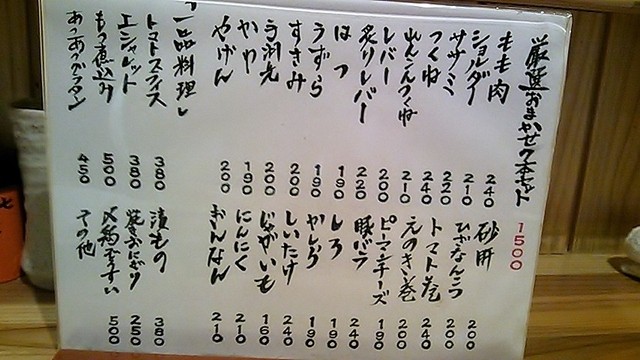 厳選おまかせ7本セット 1500
もも肉 240
ショルダー 210
ササミ 220
つくね 240
れんこんつくね 210
レバー 200
炙りレバー 220
はつ 190
うずら 190
すきみ 200
手羽先 200
かわ 190
やげん 200
「一品料理」
トマトスライス 380
エシャレット 380
もつ煮込み 500
あつあつグラタン 450
砂肝 200
ひざなんこつ 200
トマト巻 240
えのき巻 200
ピーマンチーズ 190
豚バラ 240
しろ 190
かしら 190
しいたけ 240
じゃがいも 160
にんにく 210
ぎんなん 210
漬もの 380
焼きおにぎり 250
〆鶏ぞうすい 500
その他